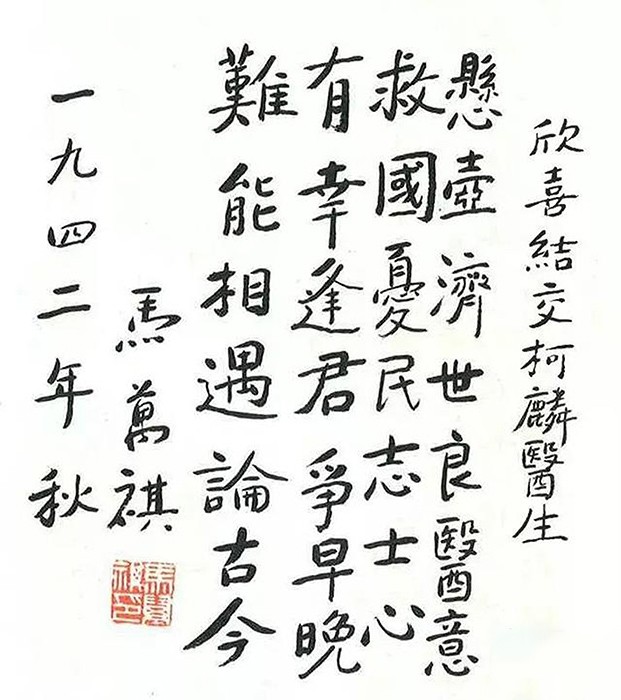 欣喜結交柯麟醫生
懸壺濟世良醫意
救國憂民志士心
有幸逢君爭早晚
難能相遇論古今
馬萬祺
一九四二年秋
馬萬祺印